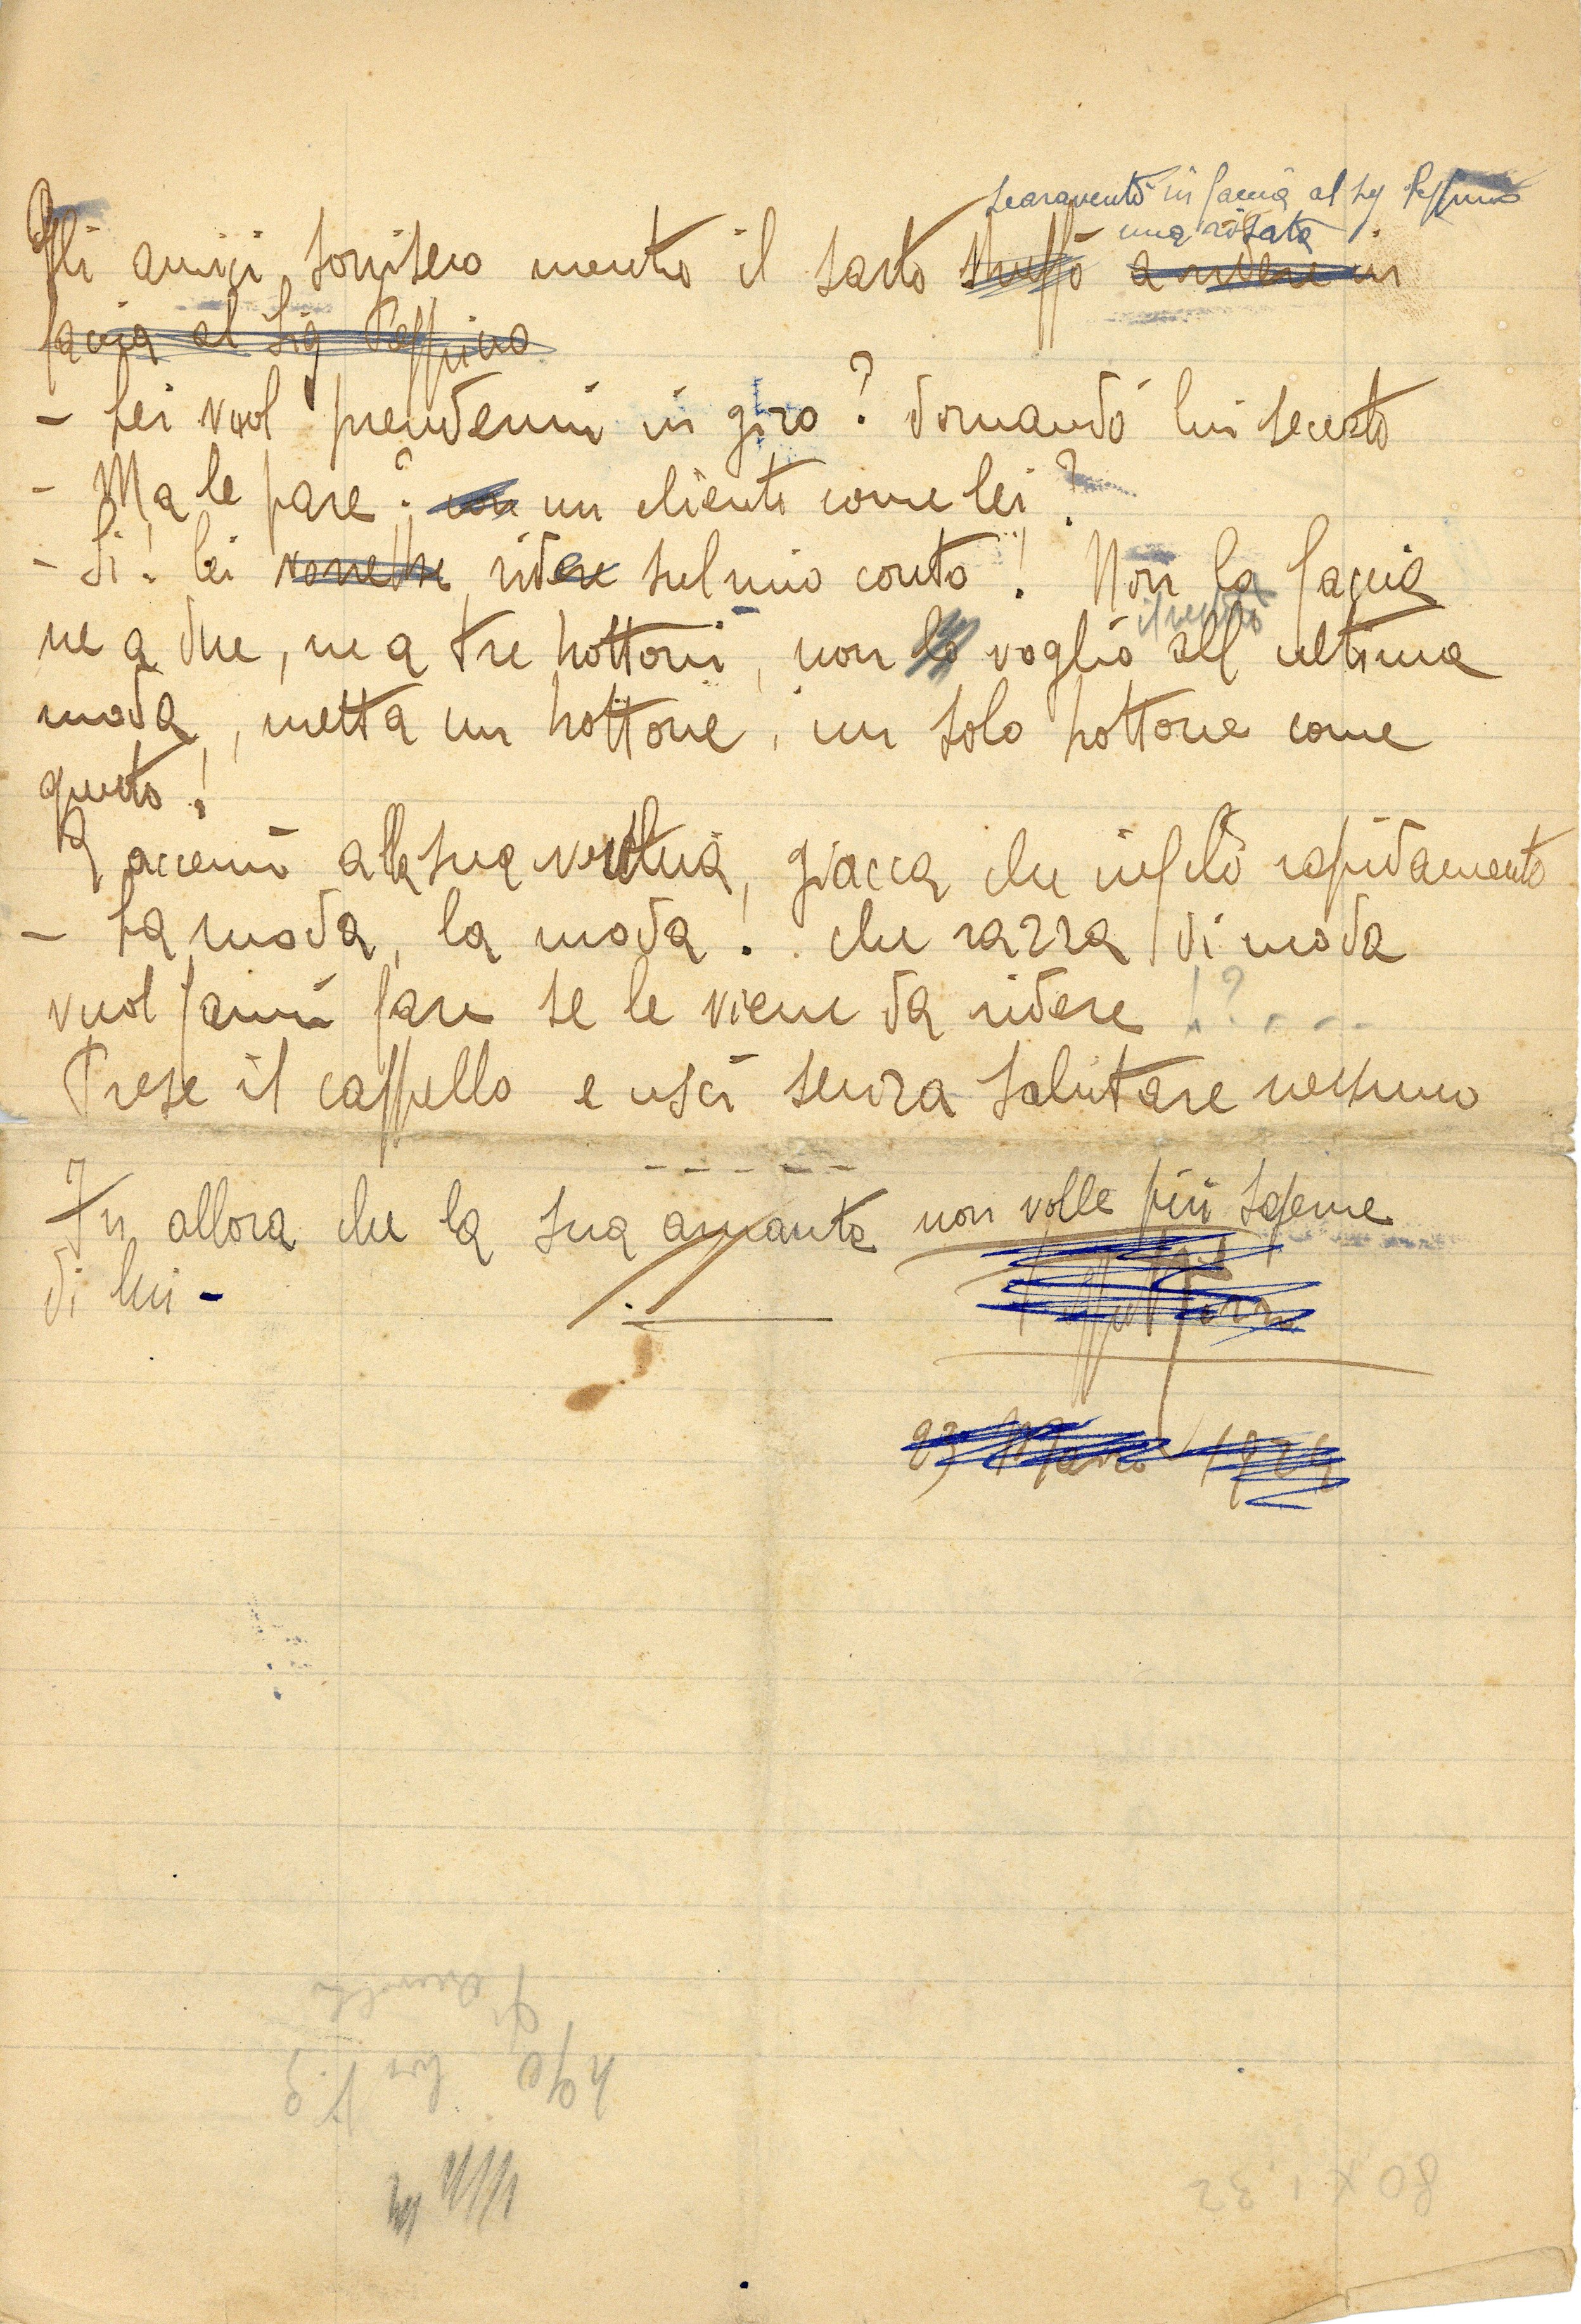 scaraventò in faccia al sig Peppino
una risata
Gli amici sorrisero mentre il sarto sbuffò a ridere in
faccia al Sig Peppino
- Lei vuol prendermi in giro? domandò lui seccato
- Ma le pare? con un cliente come lei?
- Si! lei vorrebbe ridere sul mio conto! Non la faccia
il vestito
ne a due, ne a tre bottoni, non lo voglio all ultima
moda, metta un bottone, un solo bottone come
questo!
E accennò alla sua vecchia giacca che infilò rapidamente
- La moda, la moda! che razza di moda
vuol farmi fare se le viene da ridere!?....
Prese il cappello e uscì senza salutare nessuno
- - - - -
Fu allora che la sua amante non volle più saperne
di lui -
23 Marzo 1929
80 x 1,32